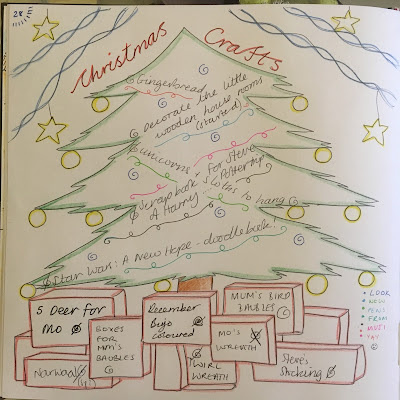 28
Christmas Crafts
Gingerbread
Decorate the little
wooden house rooms
(started)
unicorns, for Steve
Scrapbook
A Harry Potter trip
to hang
Star Wars: A New Hope - doodle book!
5 Deer for
Mo
BOXES
FOR
MUM'S
BAUBLES
Narwal
December
Bujo
coloured
TWIRL
WREATH
MUM'S BIRD
BAUBLES
MO'S
WREATH
Steve's
Stocking
LOOK
NEW
PENS
FROM
MUTI
YAY